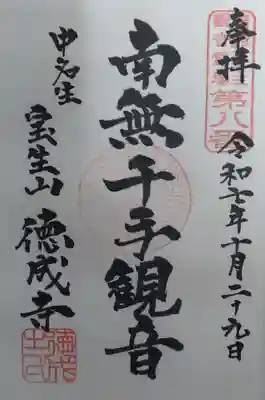 奉拝
第八号
令和七年十月二十九日
南無千手観音
宝生山
徳成寺